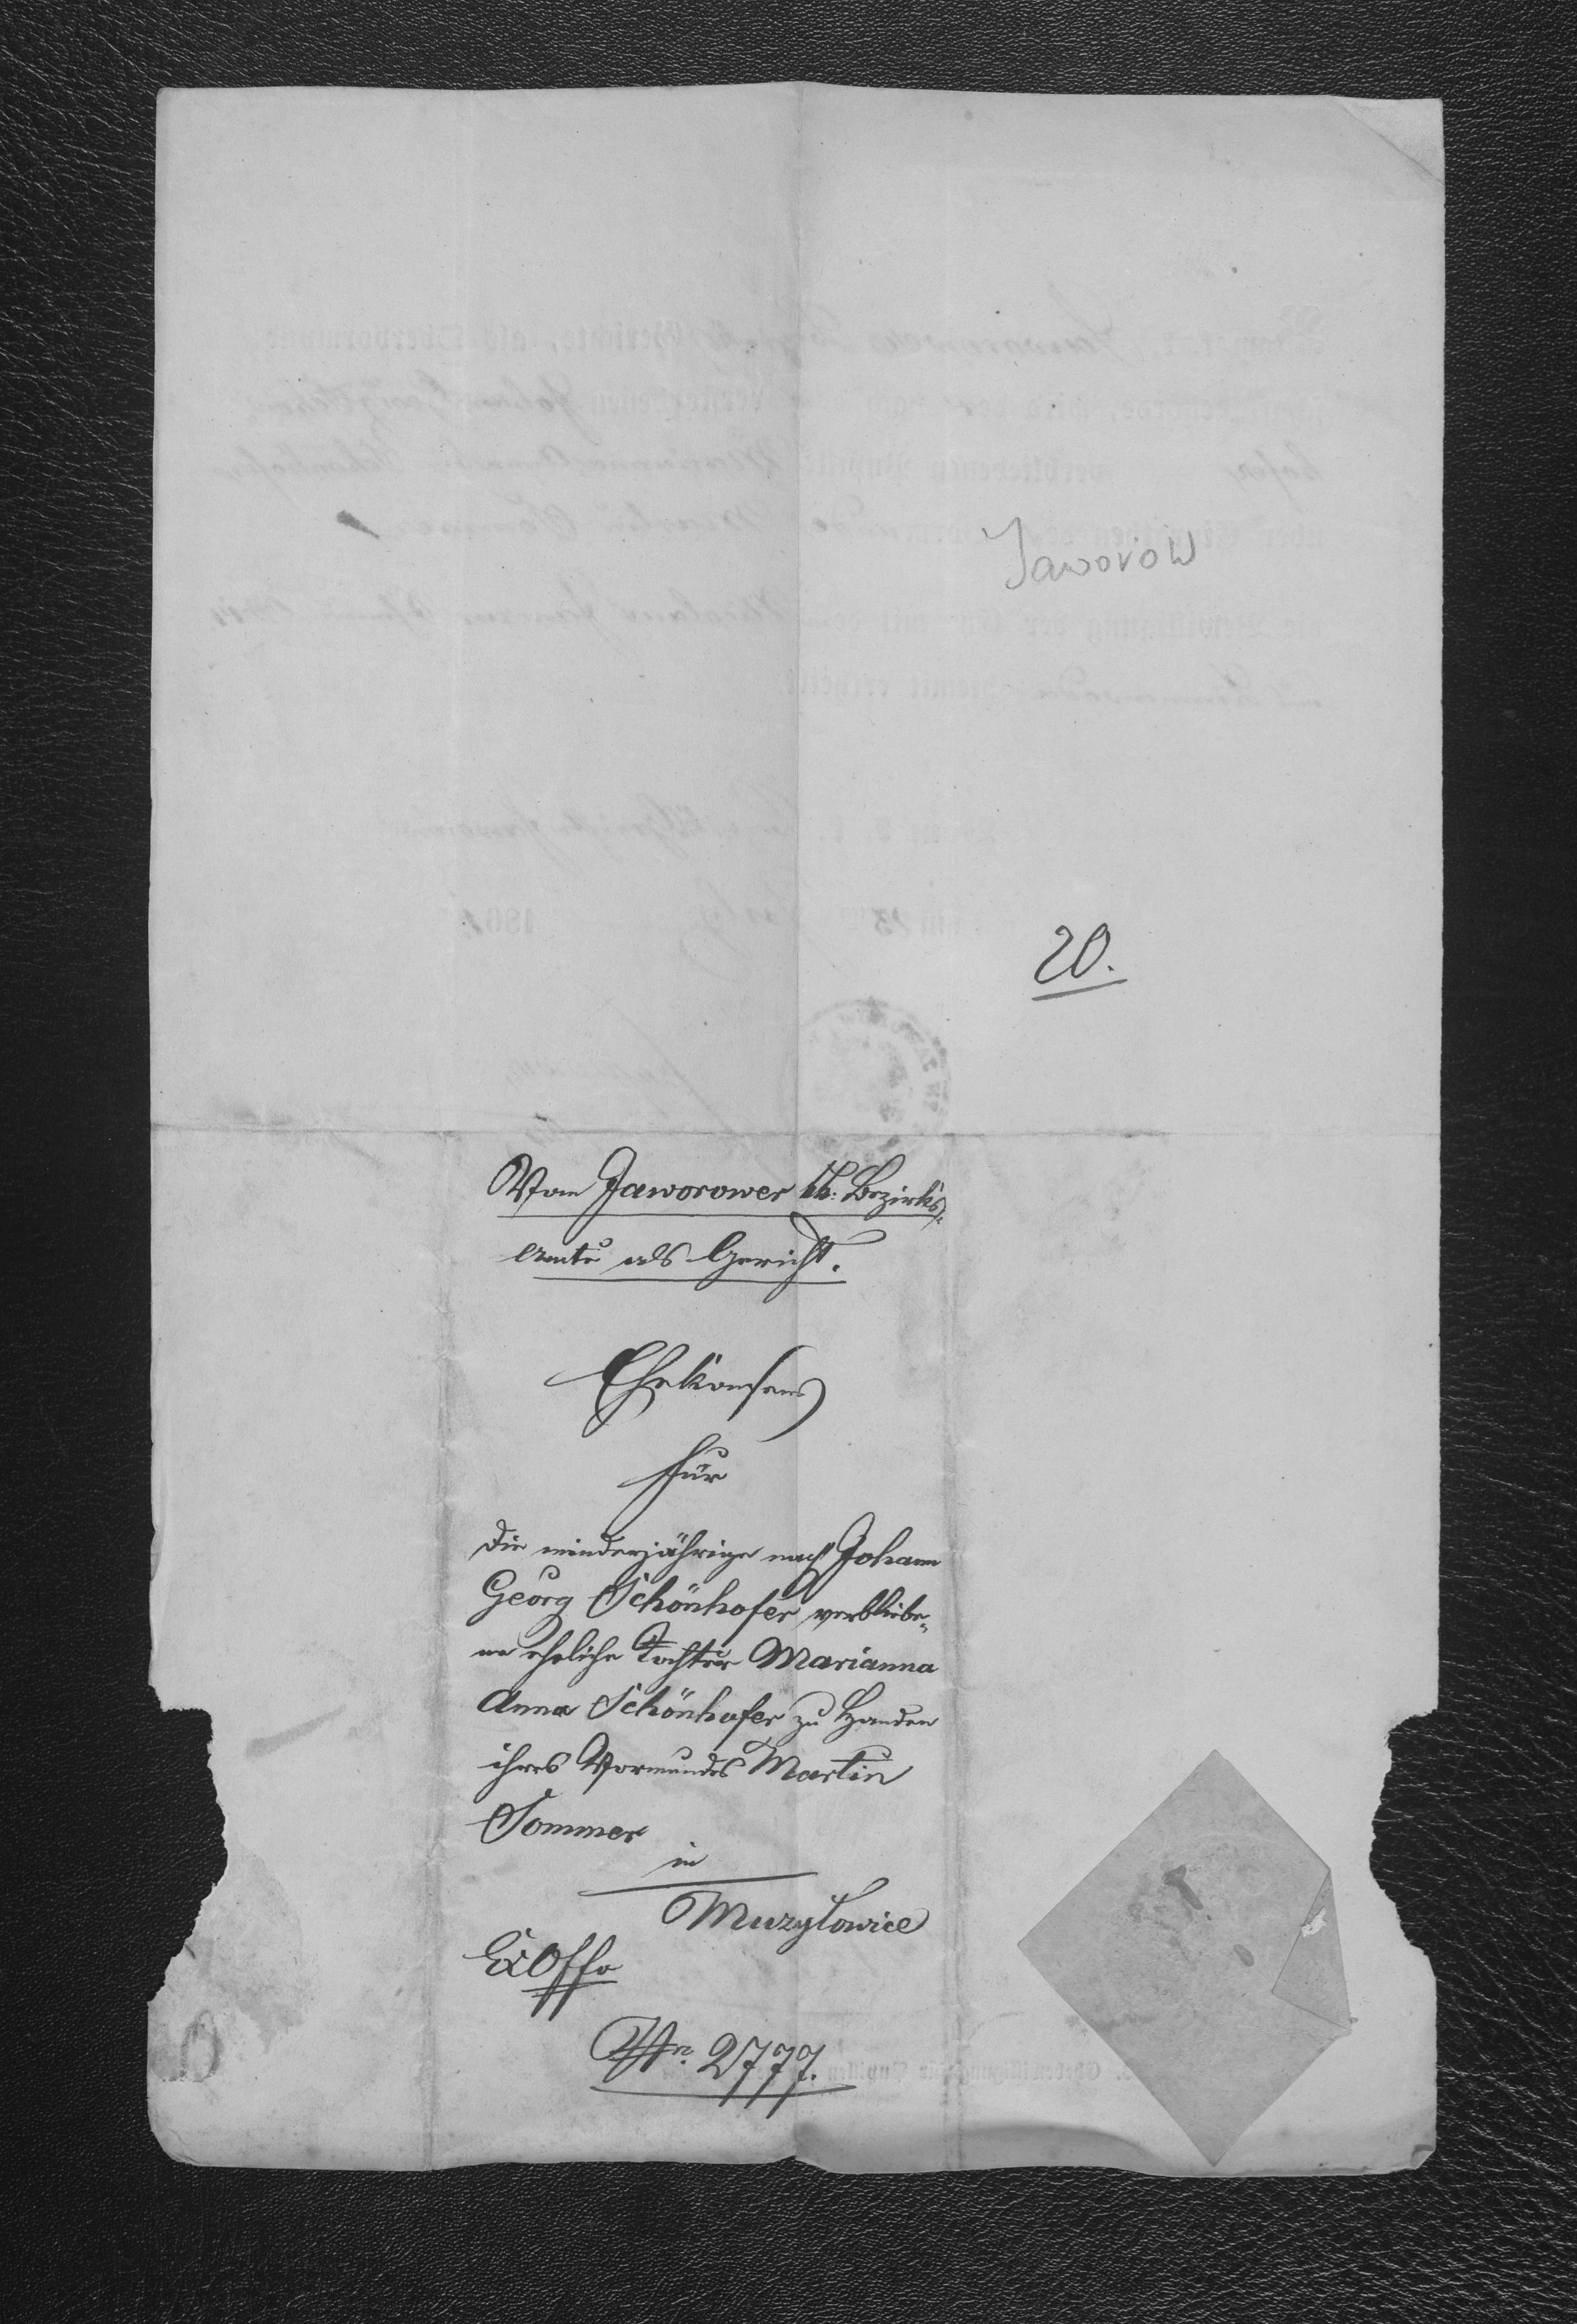 Jaworow
20.
Vom Jaworower kk: Bezirks-
amte als Gericht.
Ehekonsens
für
die minderjährige nach Johann
Georg Schönhofer verbliebe-
ne eheliche Tochter Marianna
Anna Schönhofer zu Handen
ihres Vormundes Martin
Sommer
in
Muzyłowice
Ex Offo
Nr. 2777.